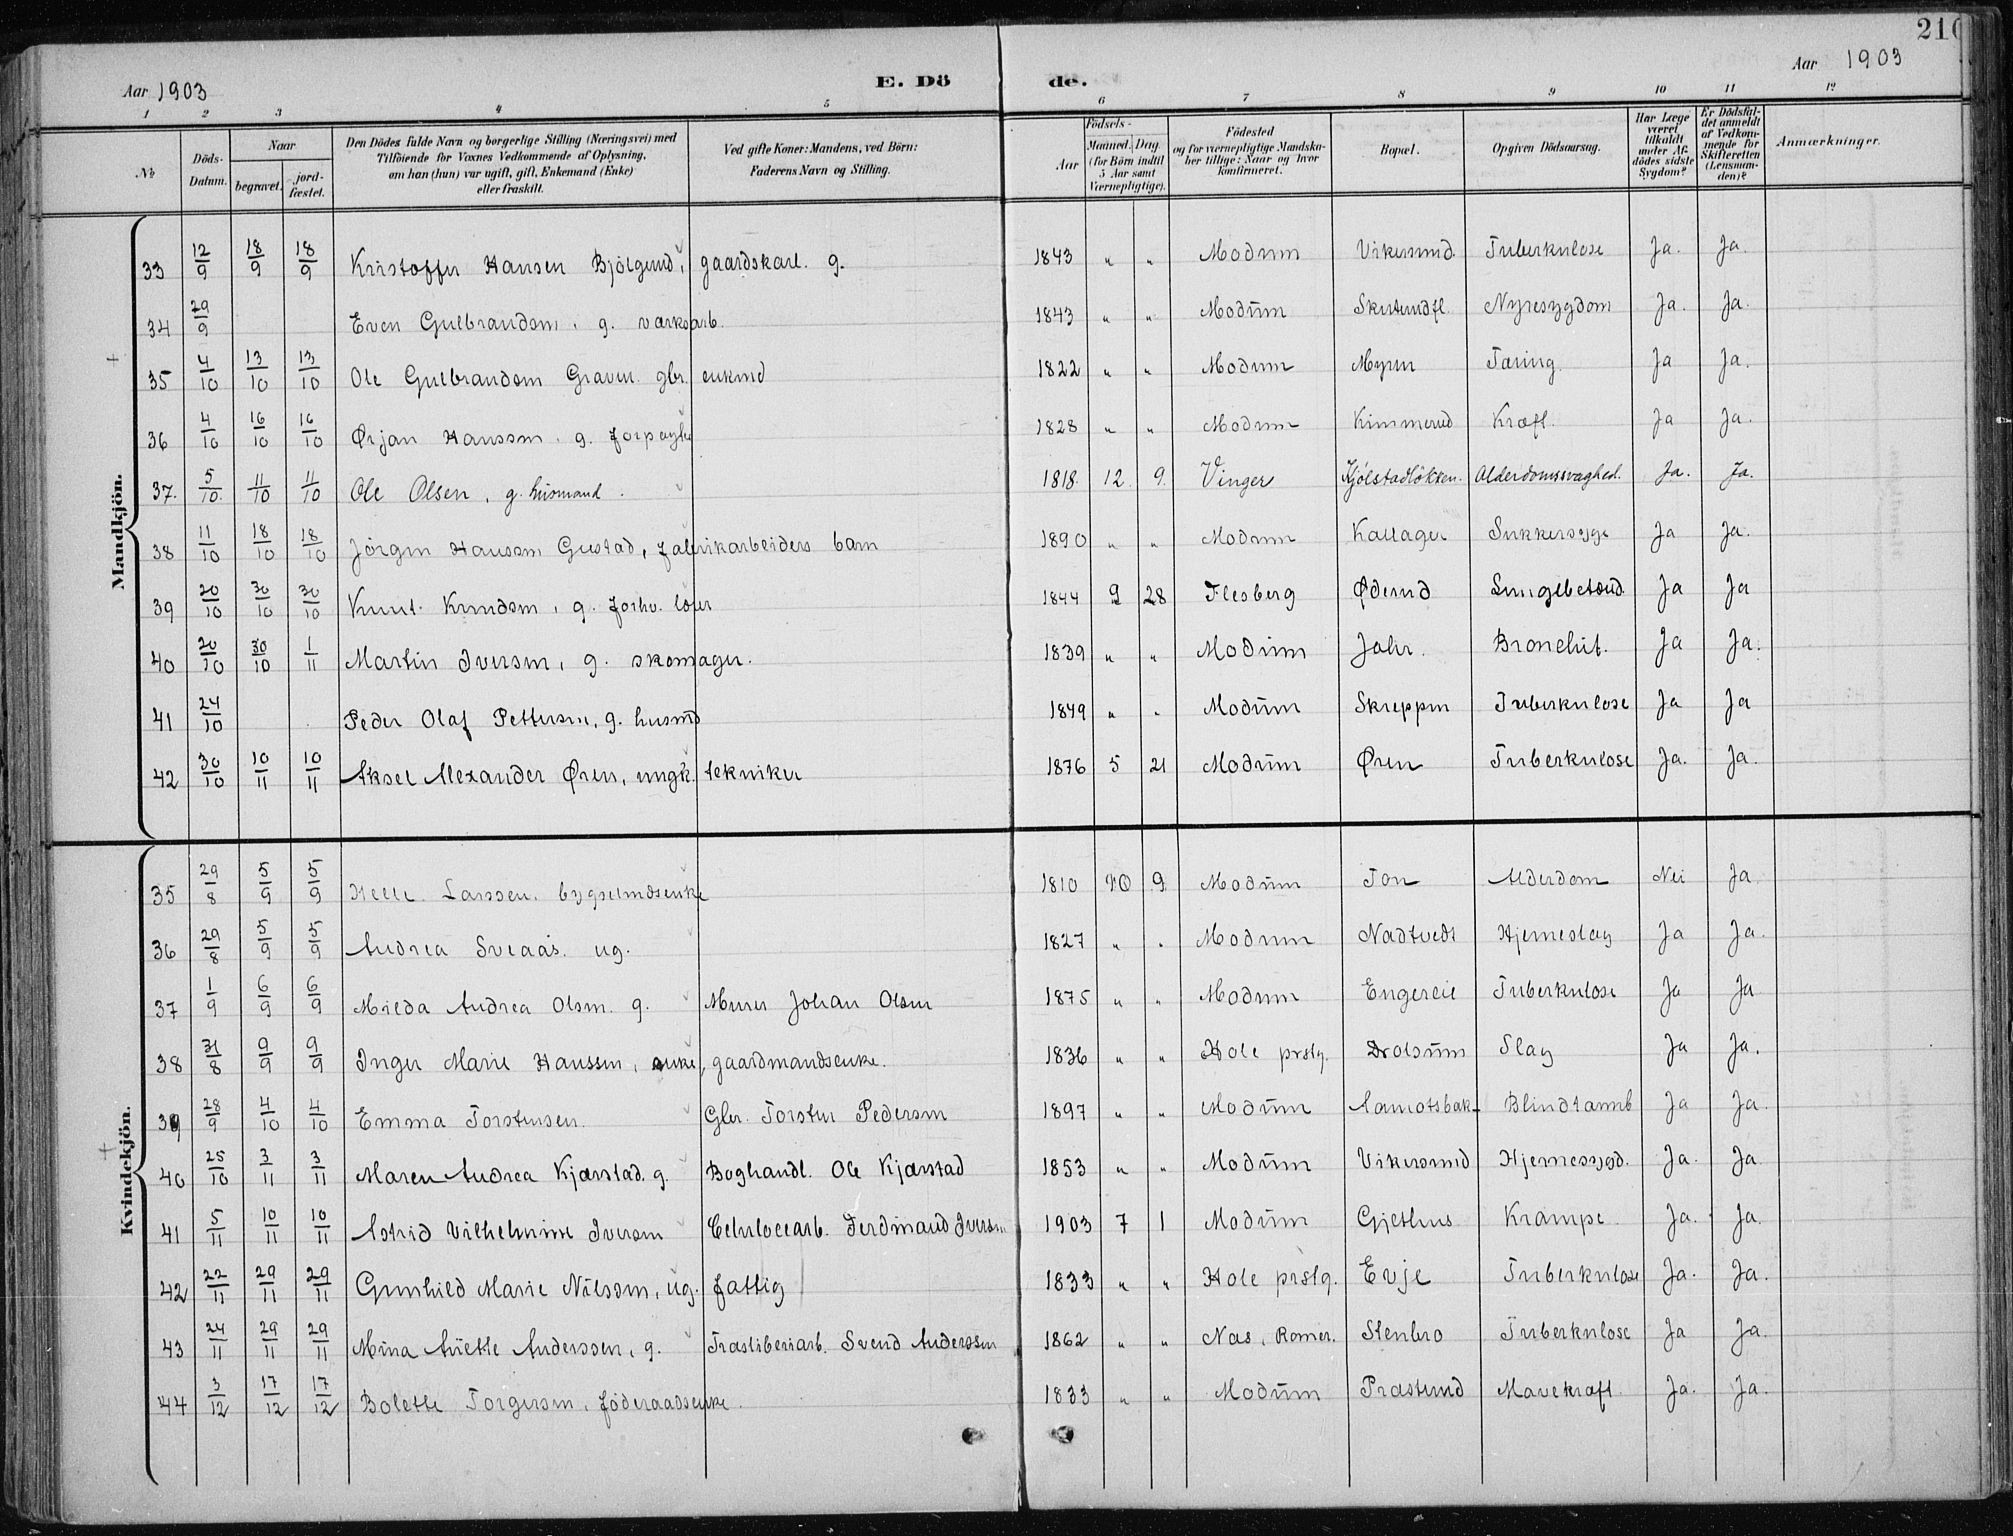 210
Aar 1903 E. Dö de. Aar 1903
1 2 3 4 5 6 7 8 9 10 11 12
No Döds-Datum. Naar begravet. jord-fæstet. Den Dödes fulde Navn og borgerlige Stilling (Næringsvei) med Tilföiende for Voxnes Vedkommende af Oplysning, om han (hun) var ugift, gift, Enkemand (Enke) eller fraskilt. Ved gifte Koner: Mandens, ved Börn: Faderens Navn og Stilling. Födsels- Aar Maaned. Dag. (for Börn indtil 5 Aar samt Værnepligtige). Födested og for værnepligtige Mandskaber tillige: Naar og hvor konfirmeret. Bopæl. Opgiven Dödsaarsag. Har Læge været tilkaldt under Afdödes sidste Sygdom? Er Dödsfaldet anmeldt af Vedkommende for Skifteretten (Lensmanden)? Anmærkninger.
Mandkjön.
33 12/9 18/9 18/9 Kristoffer Hansen Bjölgerud, gaardskarl. g. 1843 " " Modum Vikersund. Tuberkulose Ja. Ja.
34 29/9 Even Gulbrandsen, g. værksarb. 1843 " " Modum Nyresygdom Ja. Ja.
35 4/10 13/10 13/10 Ole Gulbrandsen Graven. gbr. enkmd 1822 " " Modum Myren Tæring Ja Ja.
36 4/10 16/10 16/10 Ørjan Hanssen, g. forpagter 1828 " " Modum Kimmerud Kræft. Ja Ja.
37. 5/10. 11/10 11/10 Ole Olsen, g. husmand. 1818. 12. 9. Vinger Kjölstadlökken. Alderdomssvaghed. Ja. Ja.
38 11/10 18/10 18/10 Jörgen Hanssen Gustad, fabrikarbeiders barn 1890 " " Modum Kallager Sukkersyge Ja Ja.
39 20/10 30/10 30/10 Knut Knudsen, g. forhv. lærer 1844 9 28 Flesberg Øderud Lungebetænd. Ja Ja
40 20/10 30/10 1/11 Martin Iversen, g. skomager. 1839 " " Modum Johr. Bronchit. Ja Ja.
41 24/10 Peder Olaf Pettersen, g. husmd 1849 " " Modum Skreppen Tuberkulose Ja Ja
42 30/10 10/11 10/11 Aksel Alexander Øren, ungk. tekniker 1876 5 21 Modum Øren Tuberkulose Ja. Ja.
Kvindekjön.
35 29/8 5/9 5/9 Helle Larssen, bygselmdsenke 1810 10 9 Modum Ton Alderdom Nei Ja
36 29/8 5/9 5/9 Andrea Sveaas. ug. 1827 " " Modum Nadtvedt Hjerneslag Ja Ja.
37 1/9 6/9 6/9 Milda Andrea Olsen. g. Murer Johan Olsen 1875 " " Modum Engereie Tuberkulose Ja Ja
38 31/8 9/9 9/9 Inger Marie Hanssen, enke, gaardmandsenke. 1836 " " Hole prstg. Drolsum Slag Ja Ja.
39 28/9 4/10 4/10 Emma Torstensen. Gbr. Torsten Pedersen 1897 " " Modum Aamotsbak. Blindtarmb Ja Ja.
40 25/10 3/11 3/11 Maren Andrea Kjærstad. g. Boghandl. Ole Kjærstad 1853 " " Modum Vikersund Hjernesygd. Ja. Ja.
41 5/11 10/11 10/11 Astrid Vilhelmine Iversen Celulocearb. Ferdinand Iversen 1903 7 1 Modum Gjethus Krampe Ja. Ja.
42 22/11 29/11 29/11 Gunhild Marie Nilssen, ug. fattig 1833 " " Hole prstg. Evje Tuberkulose Ja. Ja.
43 24/11 29/11 29/11 Mina Anette Anderssen, g. Træsliberiarb. Svend Anderssen 1862 " " Næs, Romer. Stenbro Tuberkulose Ja Ja.
44 3/12 17/12 17/12 Bolette Torgersen, föderaadsenke. 1833 " " Modum Præsterud Mavekræft. Ja. Ja.